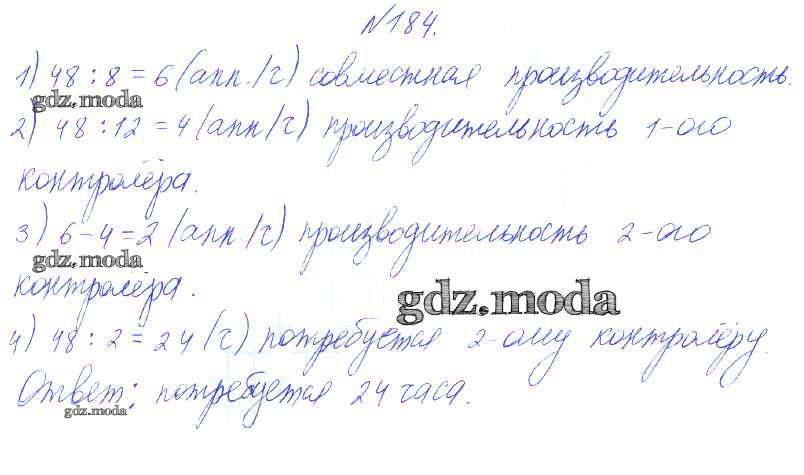 №184.
1) 48 : 8 = 6 (апп./ч) совместная производительность.
gdz.moda
2) 48 : 12 = 4 (апп/ч) производительность 1-ого
контролёра.
3) 6 - 4 = 2 (апп/ч) производительность 2-ого
gdz.moda
контролёра.
gdz.moda
4) 48 : 2 = 24 (ч) потребуется 2-ому контролёру.
Ответ: потребуется 24 часа.
gdz.moda